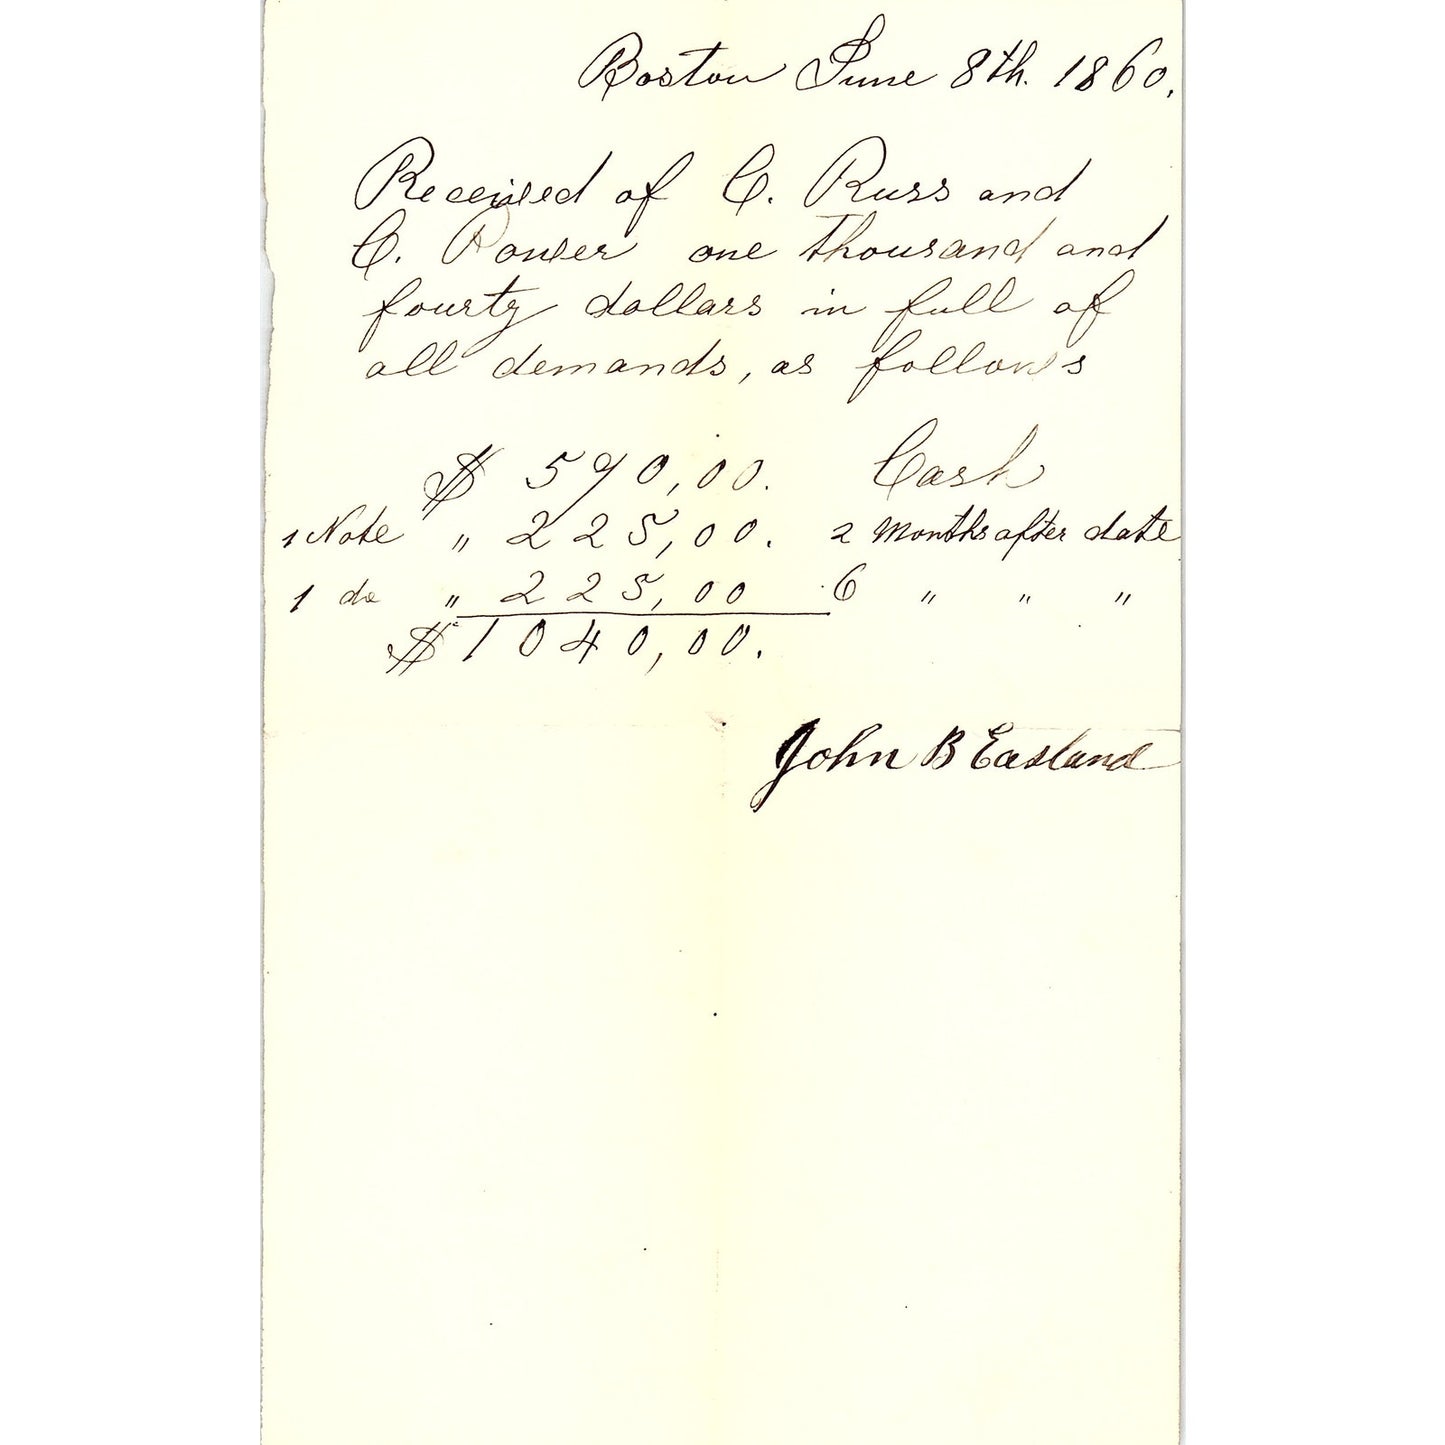 Boston June 8th. 1860.
Received of C. Russ and
C. Power one thousand and
fourty dollars in full of
all demands, as follows
$ 590,00. Cash
1 Note " 225,00. 2 Months after date
1 do " 225,00 6 " " "
$ 1040,00.
John B Eastand